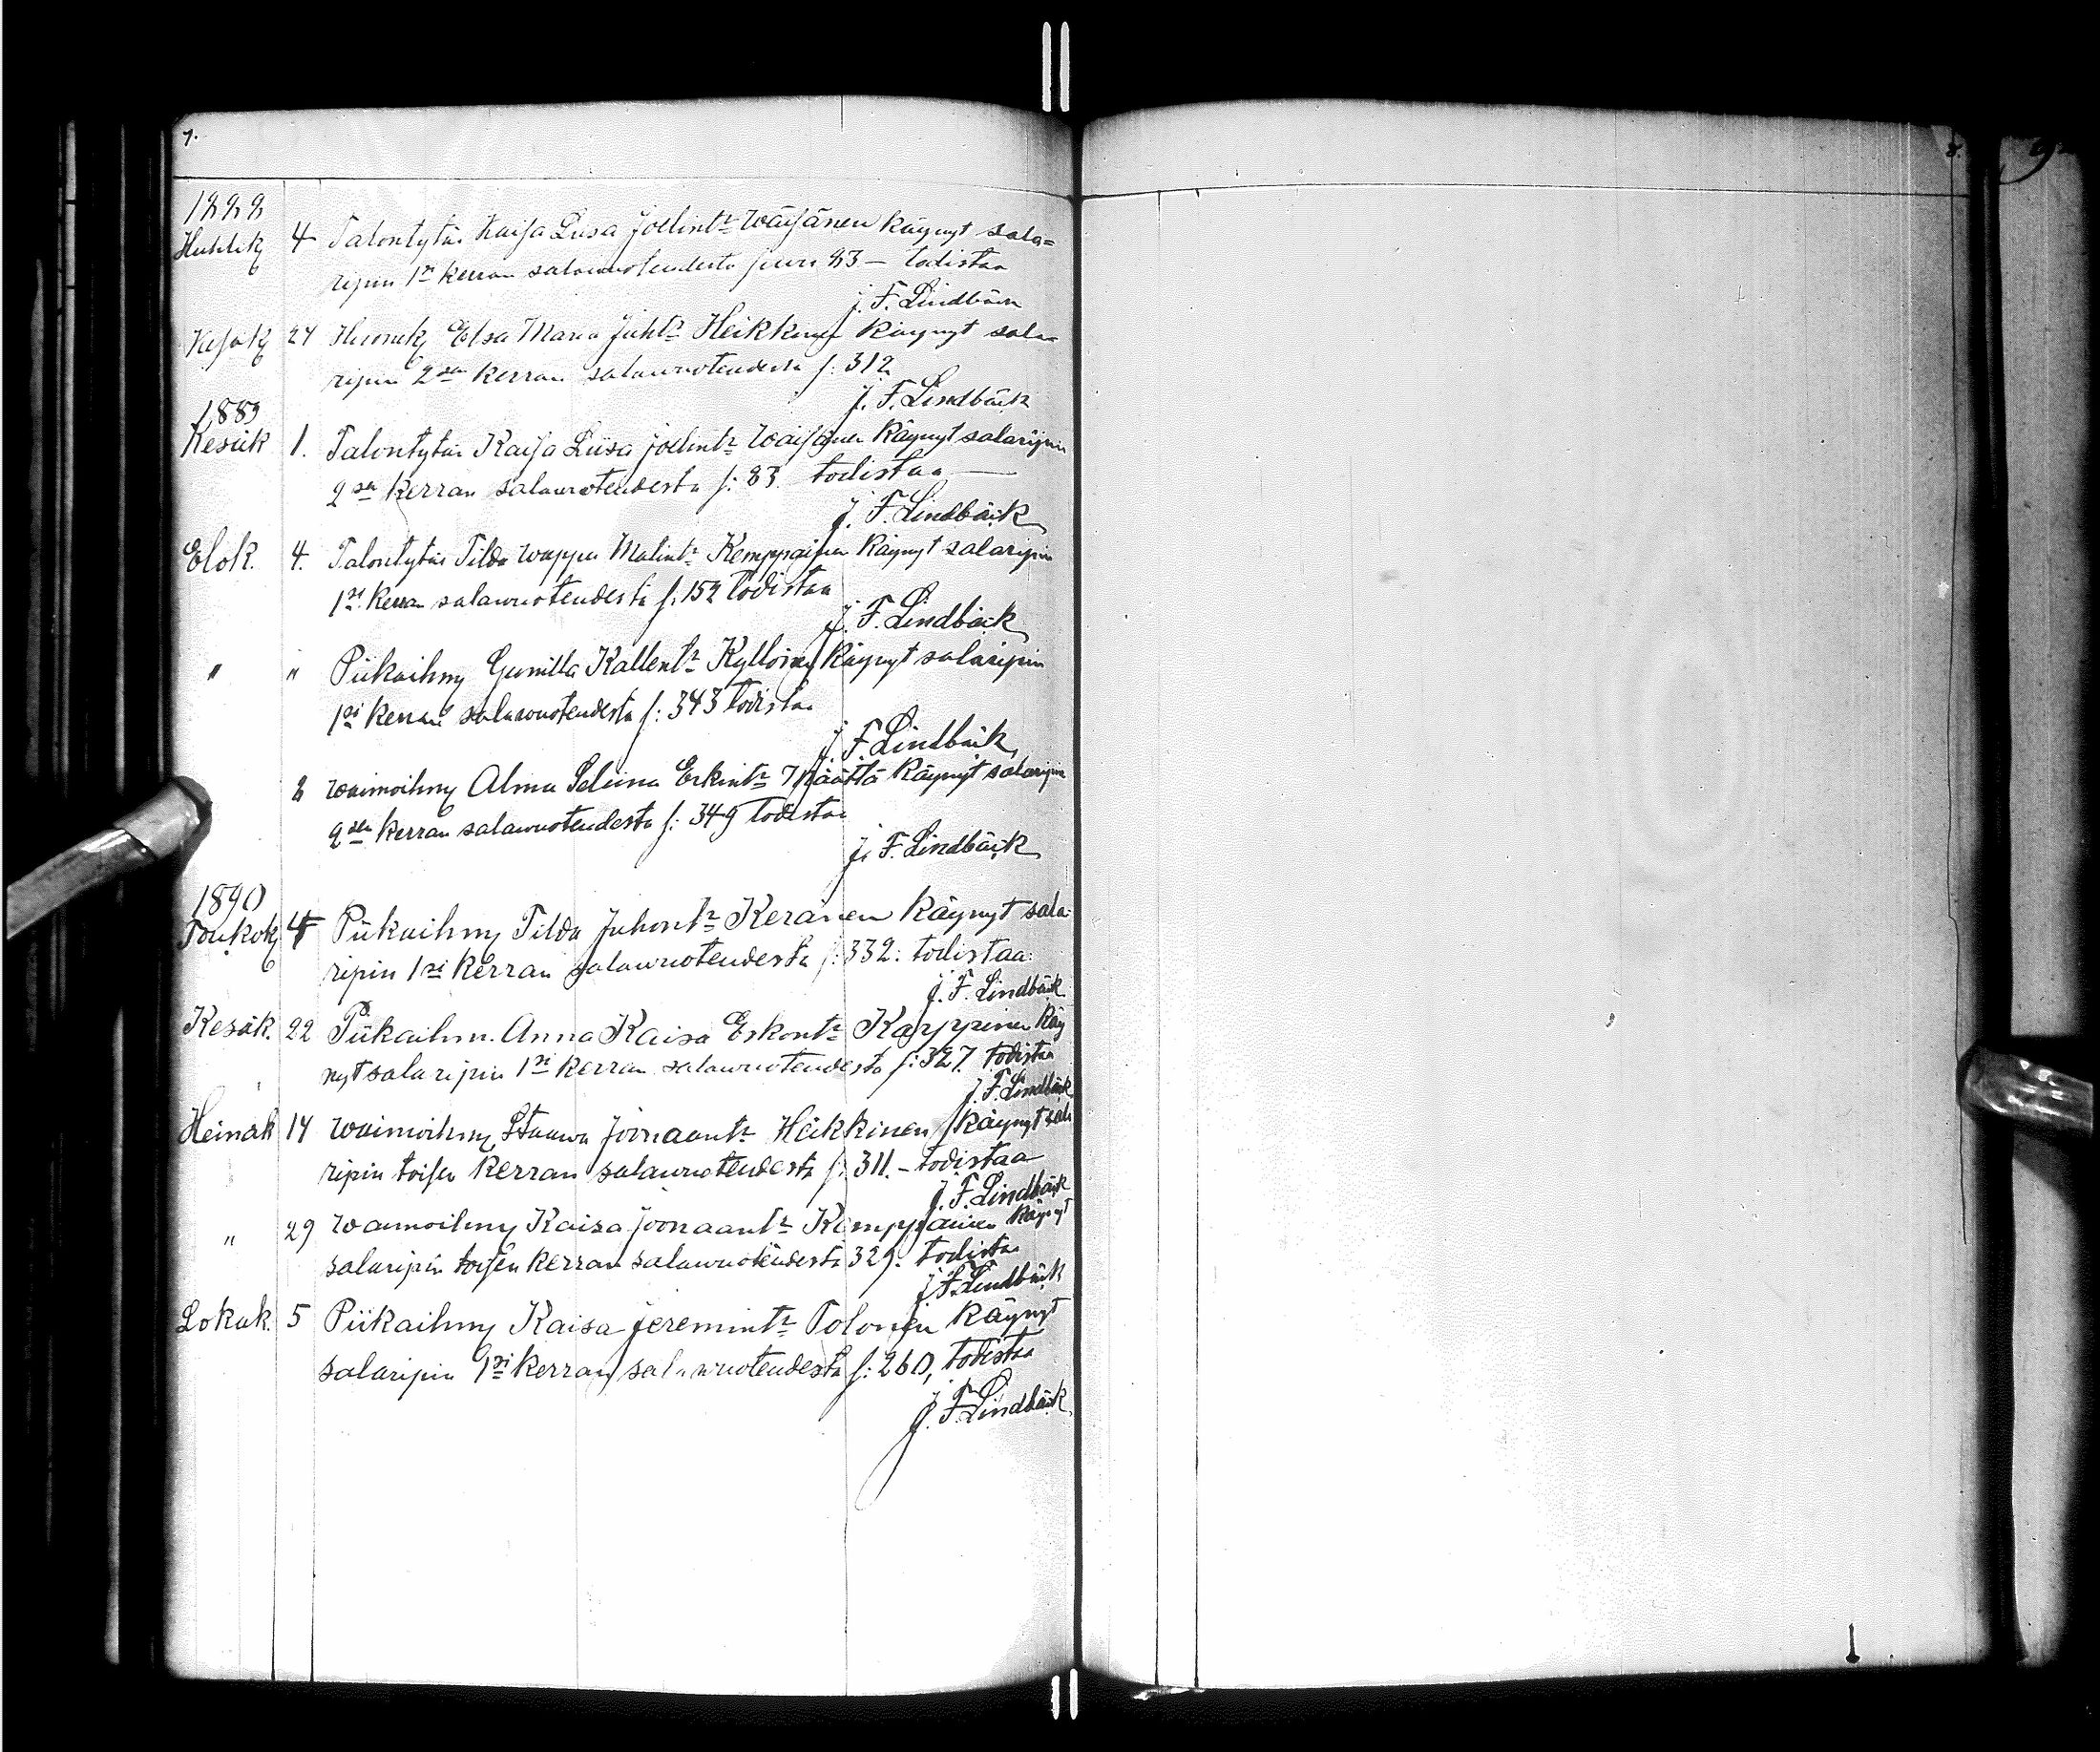 7.
8.
9
1888
Huhtik 4 Talontytär Kaisa Liisa Joelint:r Wäisänen käynyt sala=
ripin 1:n kerran salawuoteudesta sivu 83 — todistaa
J. F. Lindbäck
Kesäk 24 Huonek Elsa Maria Juht:r Heikkinen käynyt sala=
ripin 2:sen kerran salawuoteudesta s: 312
J. F. Lindbäck
1889
Kesäk 1. Talontytär Kaisa Liisa Joelint:r Wäisänen käynyt salaripin
2:sen kerran salawuoteudesta s: 83 todistaa —
J. F. Lindbäck
Elok. 4. Talontytär Tilda Wappu Malint:r Kemppainen käynyt salaripin
1:si kerran salawuoteudesta s. 152 todistaa
J. F. Lindbäck
" " Piikaihmy Gunilla Kallent:r Kyllöinen käynyt salaripin
1:si kerran salawuoteudesta s: 343 todistaa
J. F. Lindbäck
8 waimoihmy Alma Seliina Erkint:r Määttä käynyt salaripin
2:sen kerran salawuoteudesta s: 349 todistaa
J. F. Lindbäck
1890
Toukok 4 Piikaihmy Tilda Juhont:r Keränen käynyt sala-
ripin 1:si kerran salawuoteudesta s: 332: todistaa:
J. F. Lindbäck
Kesäk. 22 Piikaihm. Anna Kaisa Eskont:r Karppinen käy
nyt salaripin 1:si kerran salawuoteudesta s: 327. todistaa
J. F. Lindbäck
Heinäk 14 waimoihmy Staawa Joonaant:r Heikkinen käynyt sala
ripin toisen kerran salawuoteudesta s: 311. — todistaa
J. F. Lindbäck
" 29 waimoihmy Kaisa Joonaant:r Kemppainen käynyt
salaripin toisen kerran salawuoteudesta 329. todistaa
J. F. Lindbäck
Lokak. 5 Piikaihmy Kaisa Jeremint:r Tolonen käynyt
salaripin 1:si kerran salawuoteudesta s: 260, todistaa
J. F. Lindbäck